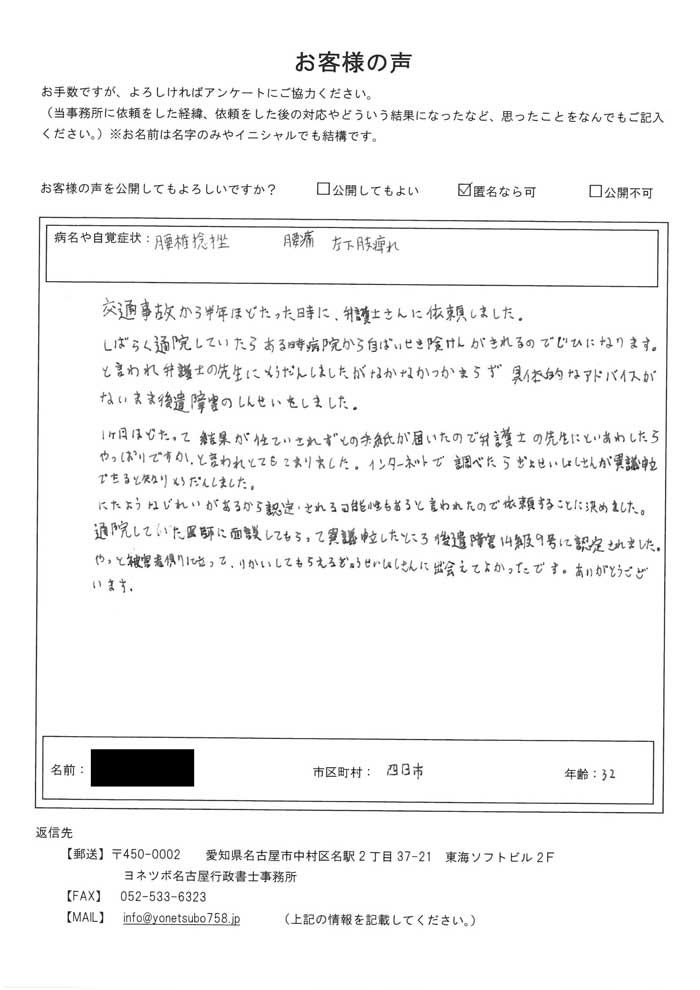 お客様の声
お手数ですが、よろしければアンケートにご協力ください。
（当事務所に依頼をした経緯、依頼をした後の対応やどういう結果になったなど、思ったことをなんでもご記入
ください。）※お名前は名字のみやイニシャルでも結構です。
お客様の声を公開してもよろしいですか？ □公開してもよい ☑匿名なら可 □公開不可
病名や自覚症状：腰椎捻挫 腰痛 左下肢痺れ
交通事故から半年ほどたった日時に、弁護士さんに依頼しました。
しばらく通院していたらある時病院から自ばいせき険けんがきれるのでじひになります。
と言われ弁護士の先生にそうだんしましたがなかなかつかまらず 具体的なアドバイスが
ないまま後遺障害のしんせいをしました。
1ヶ月ほどたって 結果が任ていされずとの手紙が届いたので弁護士の先生にといあわしたら
やっぱりですか、と言われとてもこまりました。インターネットで調べたらぎょせいしょしさんが異議申立
できると知りそうだんしました。
にたようなじれいがあるから認定される可能性もあると言われたので依頼することに決めました。
通院していた医師に面談してもらって異議申立したところ後遺障害14級9号に認定されました。
やっと被害者側に立って、りかいしてもらえるぎょうせいしょしさんに出会えてよかったです。ありがとうござ
います。
名前： 市区町村： 四日市 年齢：32
返信先
【郵送】〒450-0002 愛知県名古屋市中村区名駅２丁目37-21 東海ソフトビル２Ｆ
ヨネツボ名古屋行政書士事務所
【FAX】 052-533-6323
【MAIL】 info@yonetsubo758.jp （上記の情報を記載してください。）